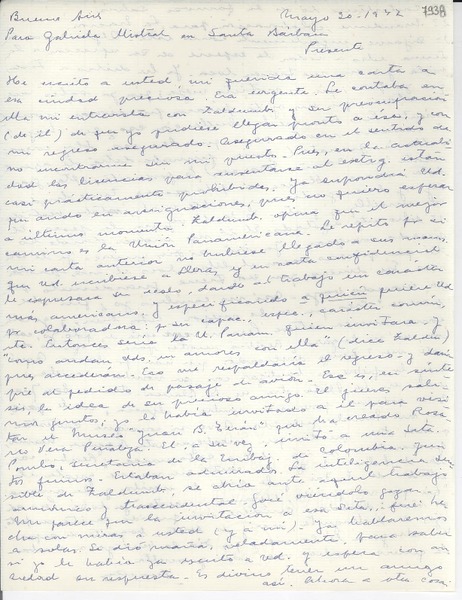 7938
Buenos Aires Mayo 20-1942
Para Gabriela Mistral en Santa Bárbara
Presente
He escrito a usted, mi querida una carta a
esa ciudad preciosa. Era urgente. Le contaba en
ella mi entrevista con Zaldumb. y su
(de él) de que yo pudiese llegar pronto a ésa, y con
mi regreso asegurado. Asegurado en el sentido de
no encontrarme sin mi puesto. Pues, en la actuali
dad las licencias para ausentarse al extrj. están
casi prácticamente prohibidas. Ya supondrá Ud.
que ando en averiguaciones, pues no quiero esperar
a último momento. Zaldumb. opina que el mejor
camino es la Unión Panamericana. Le repito por si
mi carta anterior no hubiese llegado a sus manos.
que Ud. escribiese a Lleras y en carta confidencial
le expresara su deseo, dando al trabajo un carácter
más americano. Y especificando a quién quiere Ud
pr. colaboradora; pr. su capac., espec., carácter común,
etc. Entonces sería la U. Panam. quien invitara. Y
"como andan Uds. en amores con ella" (dice Zaldu)
pues accederán. Eso me respaldaría el regreso - y daría
pie al pedido de pasaje de avión. Esa es, en sínte
sis la idea de su precioso amigo. El jueves sali-
mos juntos; yo le había invitado a él para visi
tar el Museo "Juan B. Terán" que ha creado Rosa
rio Vera Peñaloza. El, a su vez, invitó a una Srta.
Pombo, secretaria de la Embaj. de Colombia que
Estaban admirados. La inteligencia sen
sible de Zaldumb. se abría ante aquel trabajo
y trascendental. Gocé viéndolo gozar.
Me parece que la invitación a esa Srta., fué he
cha con miras a usted (y a mí). Ya hablaremos
a solas. Se dió maña, veladamente para saber
si yo le había ya escrito a Ud. y espera con an
siedad su respuesta. Es divino tener un amigo
así. Ahora a otra cosa.